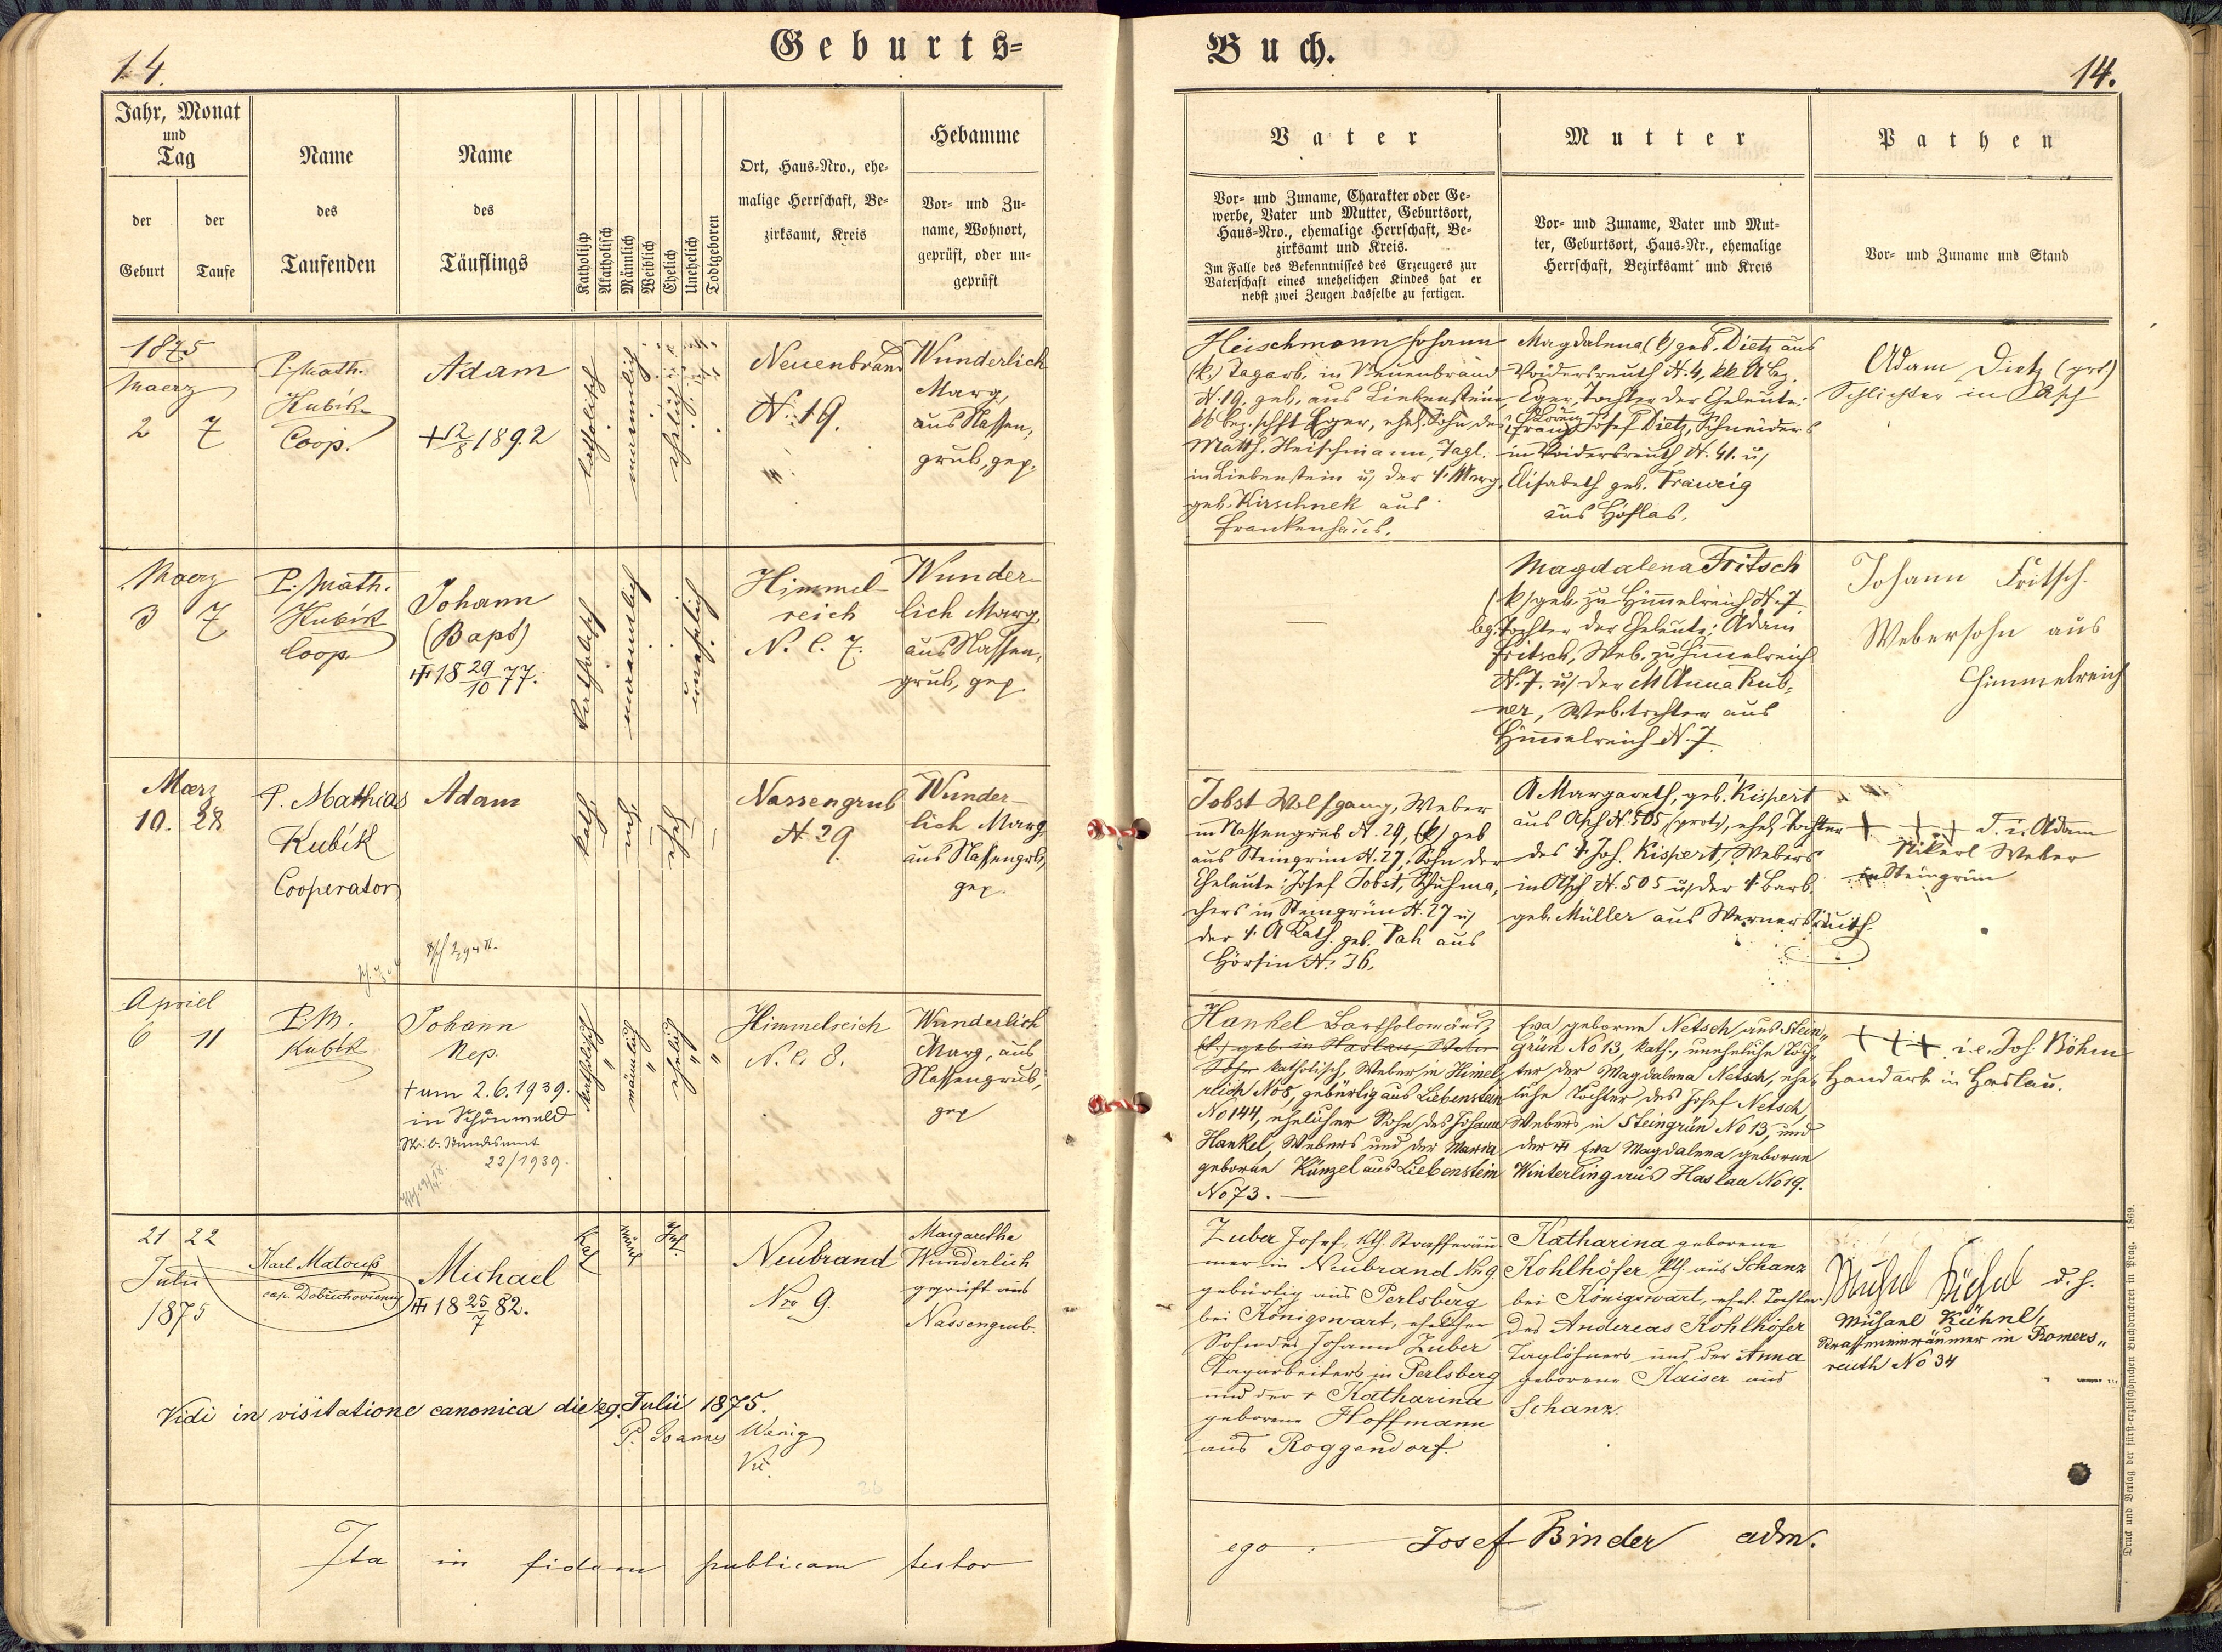 14.
Geburts=
Jahr, Monat
und
Tag
der
Geburt
der
Taufe
Name
des
Taufenden
Name
des
Täuflings
Katholisch
Akatholisch
Männlich
Weiblich
Ehelich
Unehelich
Todtgeboren
Ort, Haus-Nro., ehe-
malige Herrschaft, Be-
zirksamt, Kreis
Hebamme
Vor- und Zu-
name, Wohnort,
geprüft, oder un-
geprüft
1875
Maerz
2 7
P. Math.
Kubik
Coop.
Adam
+ 12/8 1892
katholisch
männlich
ehelich
Neuenbrand
N. 19.
Wunderlich
Marg,
aus Nassen,
grub, gep.
Maerz
3 7
P. Math.
Kubik
Coop.
Johann
(Bapt)
18 29/10 77.
katholisch
männlich
unehelich
Himmel
reich
N. C. 7.
Wunder-
lich Marg.
aus Nassen,
grub, gep.
Maerz
10. 28
P. Mathias
Kubik
Cooperator
Adam
kath
Nassengrub
N. 29.
Wunder-
lich Marg
aus Nassengrb,
gep.
Apriel
6 11
P. M.
Kubik
Johann
Nep.
+ am 2.6.1939.
in Schönwald
Standesamt
22/1939.
katholisch
männlich
ehelich
Himmelreich
N. C. 8.
Wunderlich
Marg, aus
Nassengrub,
gep
21 22
Julii
1875
Karl Matouß
cap. Dobrichoviensis
Michael
18 25/7 82.
Kath
männl
Neubrand
Nro 9.
Margaretha
Wunderlich
geprüft aus
Nassengrub.
Vidi in visitatione canonica die 29. Julii 1875.
P. Joannes Wenig
Vic.
Ita in fidem publicam testor
Buch.
14.
Vater
Vor- und Zuname, Charakter oder Ge-
werbe, Vater und Mutter, Geburtsort,
Haus-Nro., ehemalige Herrschaft, Be-
zirksamt und Kreis.
Im Falle des Bekenntnisses des Erzeugers zur
Vaterschaft eines unehelichen Kindes hat er
nebst zwei Zeugen dasselbe zu fertigen.
Mutter
Vor- und Zuname, Vater und Mut-
ter, Geburtsort, Haus-Nr., ehemalige
Herrschaft, Bezirksamt und Kreis
Pathen
Vor- und Zuname und Stand
Heischmann Johann
(k.) Tagarb. in Neuenbrand
N. 19. geb. aus Liebenstein,
kk Bez. schft Eger, ehel. Sohn des
Matth. Heischmann, Tagl.
in Liebenstein u, der + Marg.
geb. Kirschnek aus
Frankenhaus.
Magdalena (k) geb. Dietz aus
Voidersreuth N. 4, kk Bz.
Eger, Tochter der Eheleute:
Josef Dietz, Schneiders
in Voidersreuth N. 41. u,
Elisabeth geb. Trawig
aus Höflas.
Adam Dietz (prt)
Schlichter in Asch
Magdalena Fritsch
(k) geb. zu Himmelreich N. 7.
Tochter der Eheleute: Adam
Fritsch, Web. zu Himmelreich
N. 7. u, der M Anna Rub,
ner, Web.tochter aus
Himmelreich N. 7
Johann Fritsch.
Webersohn aus
Himmelreich
Jobst Wolfgang, Weber
in Nassengrub N. 29, (k) geb
aus Steingrün N. 27, Sohn der
Eheleute: Josef Jobst, Schuhma,
chers in Steingrün N. 27 u,
der + A Kath. geb. Pah aus
Hörsin N. 36.
A Margareth, geb. Kispert
aus Asch N. 505, (prot), ehel. Tochter
des + Joh. Kispert, Webers
in Asch N. 505 u, der + Barb.
geb. Müller aus Wernersreuth.
+ + + d. i. Adam
Nikerl Weber
in Steingrün
Hankel Bartholomäus,
(k.) geb. in Haslau, Weber
Sohn katholisch, Weber in Himel,
reich No 8, gebürtig aus Liebenstein
No 144, ehelicher Sohn des Johann
Hankel, Webers und der Maria
geborne Künzel aus Liebenstein
No 73.
Eva geborne Netsch aus Stein„
grün No 13, kath., uneheliche Toch„
ter der Magdalena Netsch, ehe„
liche Tochter des Josef Netsch,
Webers in Steingrün No 13, und
der Eva Magdalena geborne
Winterling aus Haslau No 19.
+ + + i.e. Joh. Böhm
Handarb in Haslau.
Zuber Josef, kth. Straßeräu-
mer in Neubrand No 9
gebürtig aus Perlsberg
bei Königswart, ehelicher
Sohn des Johann Zuber
Tagarbeiters in Perlsberg
und der + Katharina
geborene Hoffmann
aus Roggendorf.
Katharina geborene
Kohlhöfer kth. aus Schanz
bei Königswart, ehel. Tochter
des Andereas Kohlhöfer
Taglöhners und der Anna
geborene Kaiser aus
Schanz.
d. h.
Michael Kühnel,
Strasseneinräumer in Romers„
reuth No 34
ego: Josef Binder adm.
Druck und Verlag der fürst-erzbischöflichen Buchdruckerei in Prag. 1869.